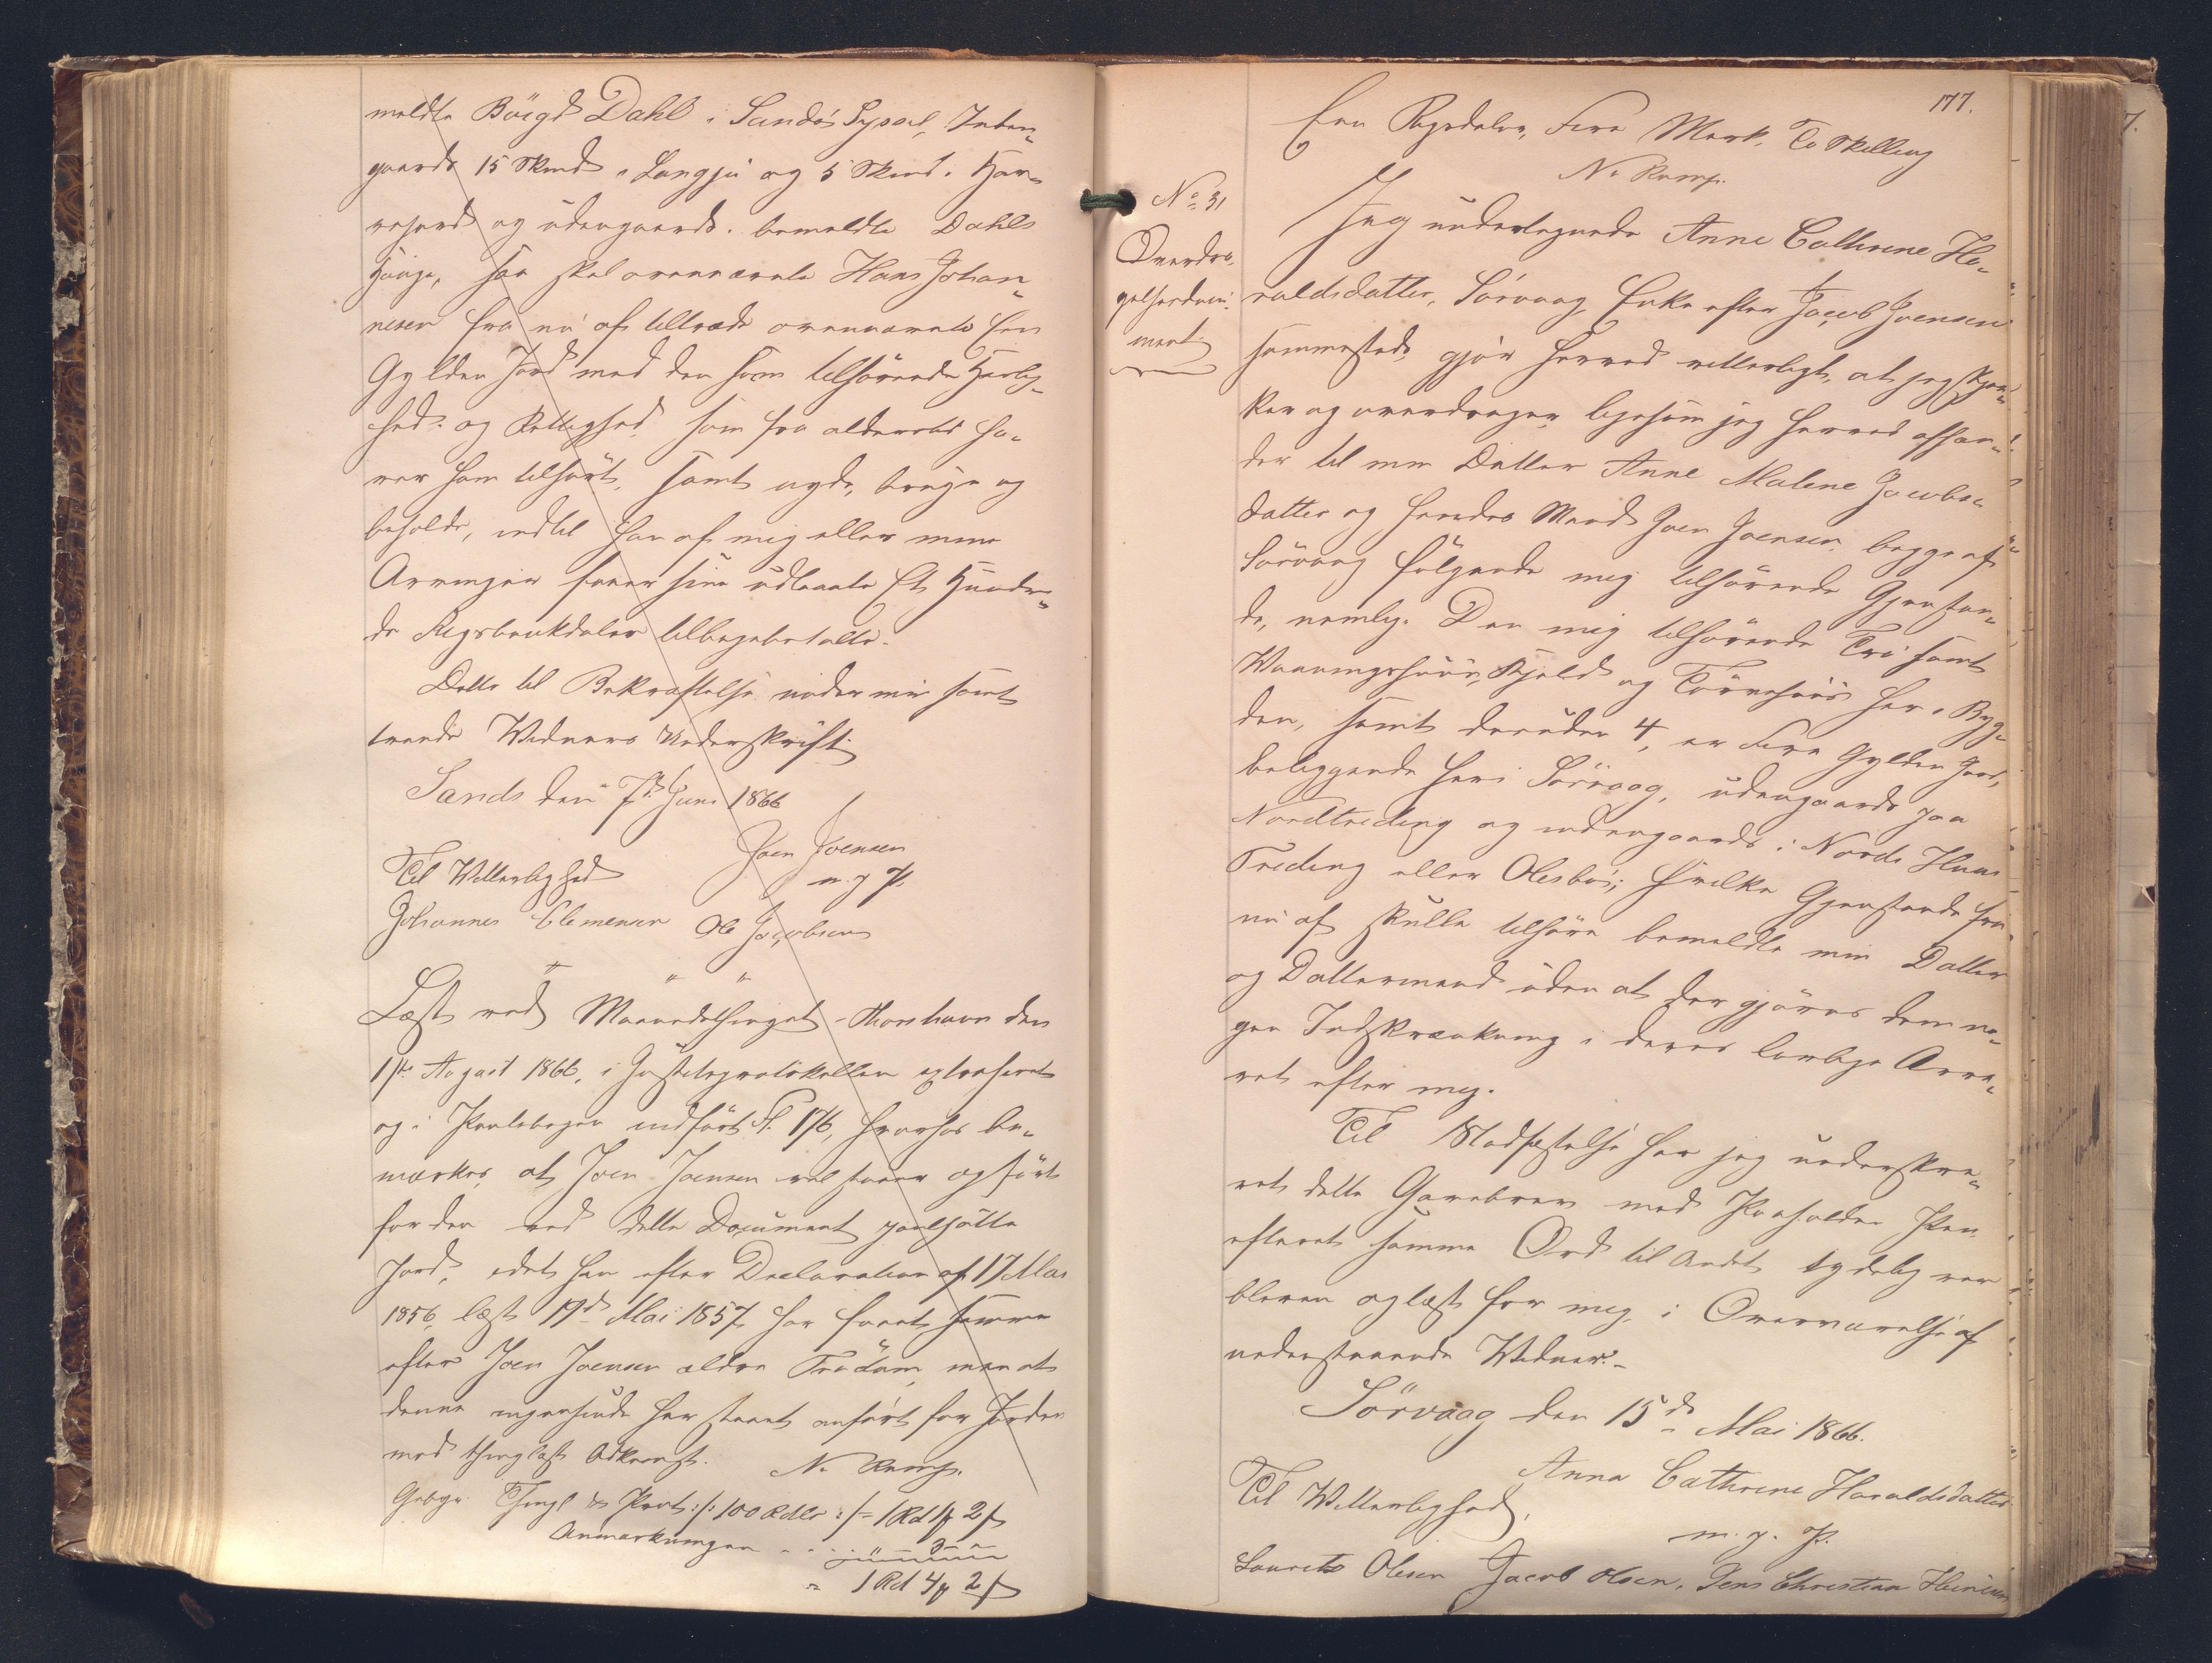 meldte Böigd Dahl i Sandös Syssel, Inden-
gaards 15 Skind i Langju og 5 Skind i Har-
refjord og udengaards i bemeldte Dahls
Hauge, saa skal ovennævnte Hans Johan-
nesen fra nu af tiltræde ovennævnte Een
Gylden Jord med den ham tilhörende Herlig-
hed og Rettighed, som fra alderstid ha-
ver ham tilhört, samt nyde, bruge og
beholde, indtil han af mig eller mine
Arvinger faaer sine udlaante Et Hundre-
de Rigsbankdaler tilbagebetalte.
Dette til Bekræftelse under min samt
tvende Widners Underskrift.
Sands den 7de Juni 1866
Joen Joensen
m. f. P.
Til Witterlighed
Johannes Clemensen Ole Jacobsen
" " "
Læst ved Maanedsthinget i Thorshavn den
1ste August 1866, i Justitsprotokollen extraheret
og i Pantebogen indfört Fl. 176, hvorhos be-
mærkes, at Joen Joensen vel staaer opfört
for den ved dette Document pantsatte
Jord, idet han efter Declaration af 17 Mai
1856, læst 19de Mai 1857 har faaet samme
efter Joen Joensen ældre Trödum, men at
denne ingensinde har staaet anfört for Jorden
med thinglæst Adkomst. N. Kamp.
Gebyr Thingl. & Prot: /: 100 Rdlr :/ = 1 Rd 1 ₰ 2 ß
Anmærkningen . . . . " 3 "
= 1 Rd 4 ₰ 2 ß
177.
Een Rigsdaler, Fire Mark, To Skilling
N. Kamp.
No 31
Overdra-
gelsesdocu-
ment
Jeg undertegnede Anne Cathrine Ha-
raldsdatter, Sörvaag, Enke efter Jacob Joensen
sammesteds, gjör herved vitterligt, at jeg skjen-
ker og overdrager ligesom jeg herved afhæn-
der til min Datter Anne Malene Jacobs-
datter og hendes Mand Joen Joensen, begge af
Sörvaag fölgende mig tilhörende Gjenstan-
de, nemlig: Den mig tilhörende Tri samt
Vaaningshuus, Kjeld og Törvehuus her i Byg-
den, samt desuden 4, er Fire Gylden Jord,
beliggende her i Sörvaag, udengaards paa
Nordtreding og indengaards i Norde Huus
Treding eller Olesbö; hvilke Gjenstande fra
nu af skulle tilhöre bemeldte min Datter
og Dattermand uden at der gjöres dem no-
gen Indskrænkning i deres lovlige Arve-
ret efter mig.
Til Stadfæstelse har jeg underskre-
vet dette Gavebrev med Paaholden Pen
efteret samme Ord til andet tydelig var
bleven oplæst for mig, i Overværelse af
nedenstaaende Widner.-
Sörvaag den 15de Mai 1866.
Anna Cathrine Haraldsdatter
m. f. P.
Til Witterlighed,
Lauritz Olesen Jacob Olsen, Jens Christian Heinesen